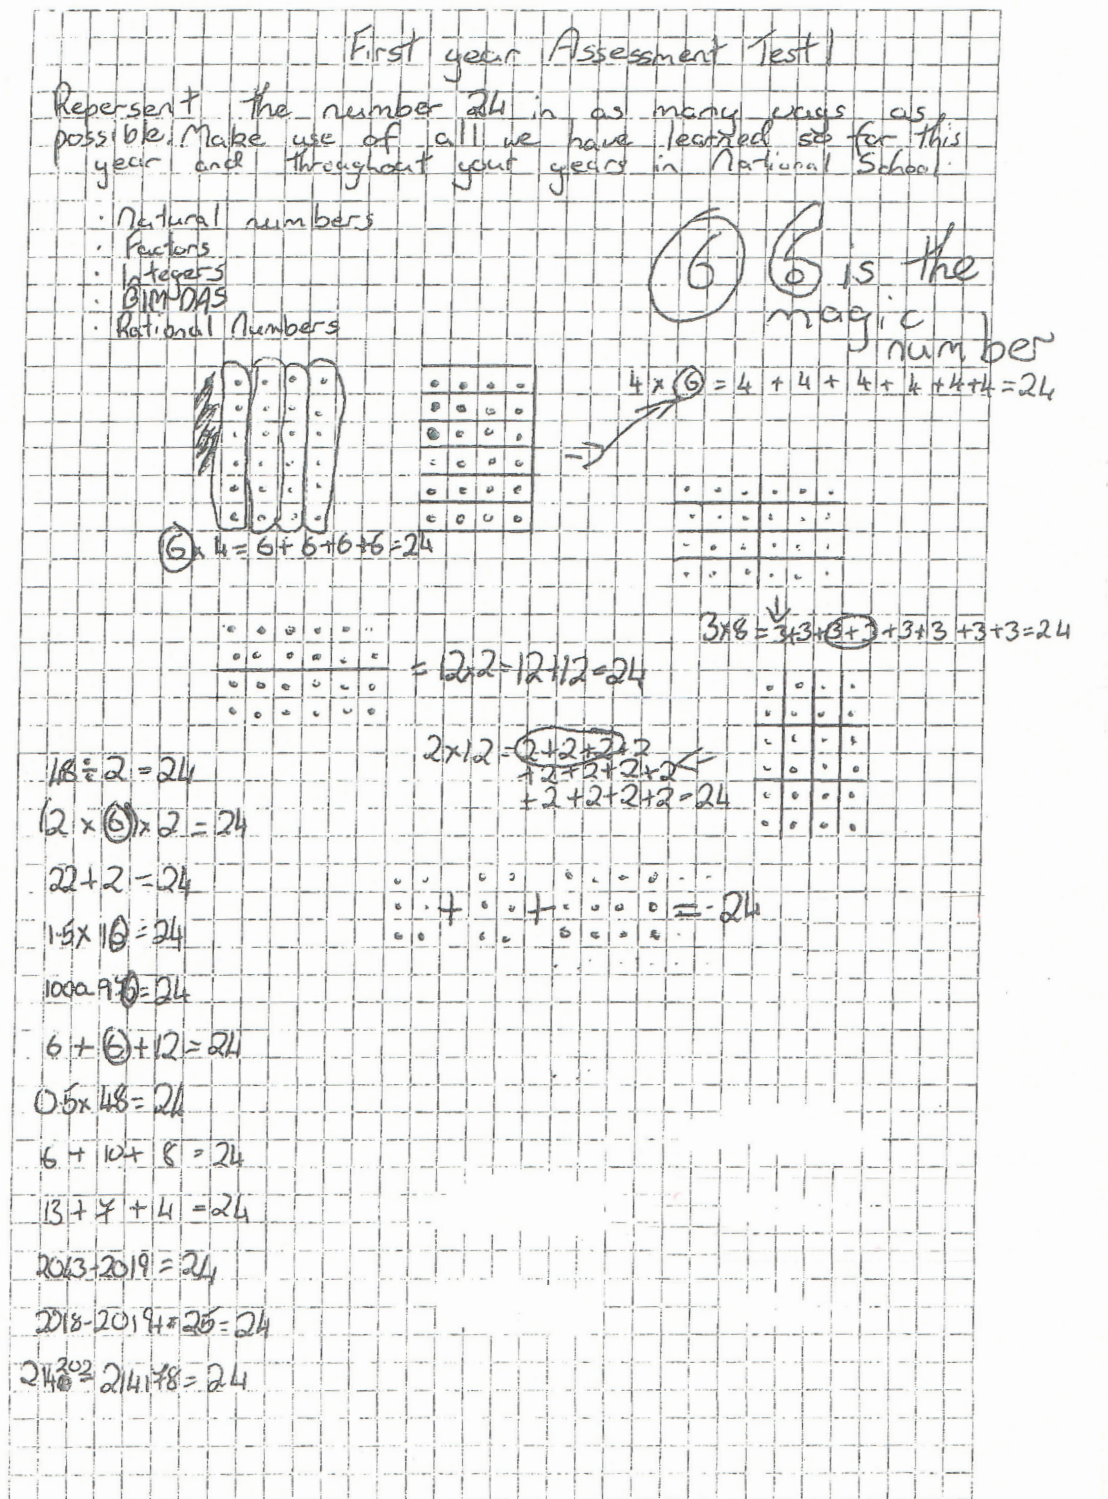 First year Assessment Test
Repersent the number 24 in as many ways as
possible. Make use of all we have learned so far this
year and throughout your years in National School.
· Natural numbers
· Factors
· Integers
· BIMDAS
· Rational Numbers
6 6 is the
magic
number
4 × 6 = 4 + 4 + 4 + 4 + 4 + 4 = 24
6 × 4 = 6 + 6 + 6 + 6 = 24
3×8 = 3+3+3+3+3+3+3+3=24
= 12×2=12+12=24
2×12 = 2+2+2+2
+2+2+2+2
+2+2+2+2=24
48 ÷ 2 = 24
(2 × 6) × 2 = 24
22 + 2 = 24
+ + = 24
1.5 × 16 = 24
1000-976=24
6 + 6 + 12 = 24
0.5 × 48 = 24
6 + 10 + 8 = 24
13 + 7 + 4 = 24
2043-2019 = 24
2018-2019+25=24
= 24